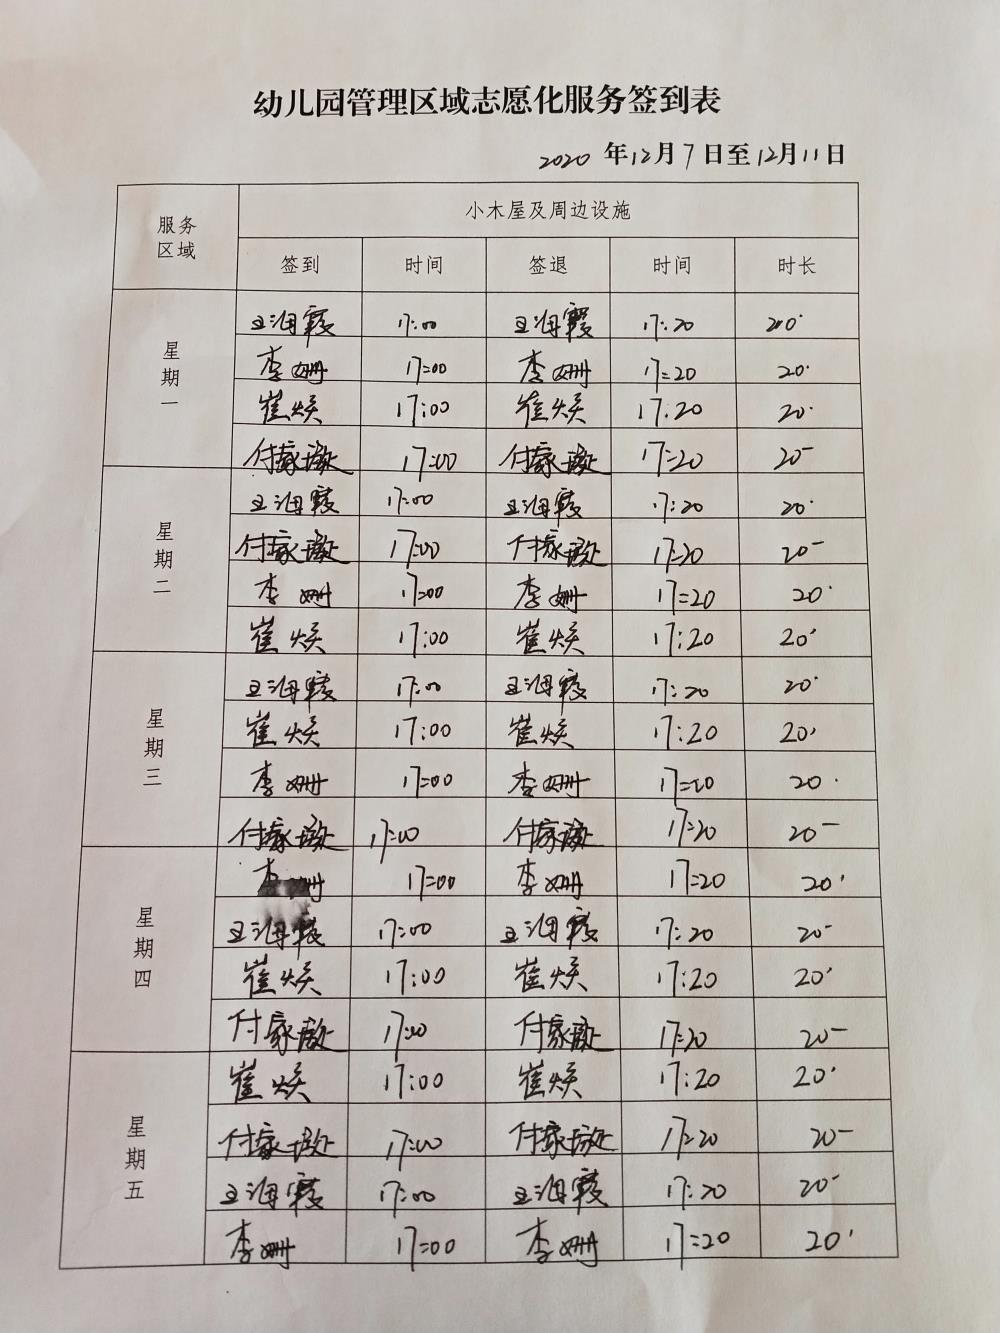 幼儿园管理区域志愿化服务签到表
2020 年12月7日至12月11日
服务区域 小木屋及周边设施
签到 时间 签退 时间 时长
星期一
王海霞 17:00 王海霞 17:20 20'
李姗 17:00 李姗 17:20 20'
崔焕 17:00 崔焕 17:20 20'
付家 17:00 付家 17:20 20'
星期二
王海霞 17:00 王海霞 17:20 20'
付家 17:00 付家 17:20 20'
李姗 17:00 李姗 17:20 20'
崔焕 17:00 崔焕 17:20 20'
星期三
王海霞 17:00 王海霞 17:20 20'
崔焕 17:00 崔焕 17:20 20'
李姗 17:00 李姗 17:20 20'
付家 17:00 付家 17:20 20'
星期四
李姗 17:00 李姗 17:20 20'
王海霞 17:00 王海霞 17:20 20'
崔焕 17:00 崔焕 17:20 20'
付家 17:00 付家 17:20 20'
星期五
崔焕 17:00 崔焕 17:20 20'
付家 17:00 付家 17:20 20'
王海霞 17:00 王海霞 17:20 20'
李姗 17:00 李姗 17:20 20'